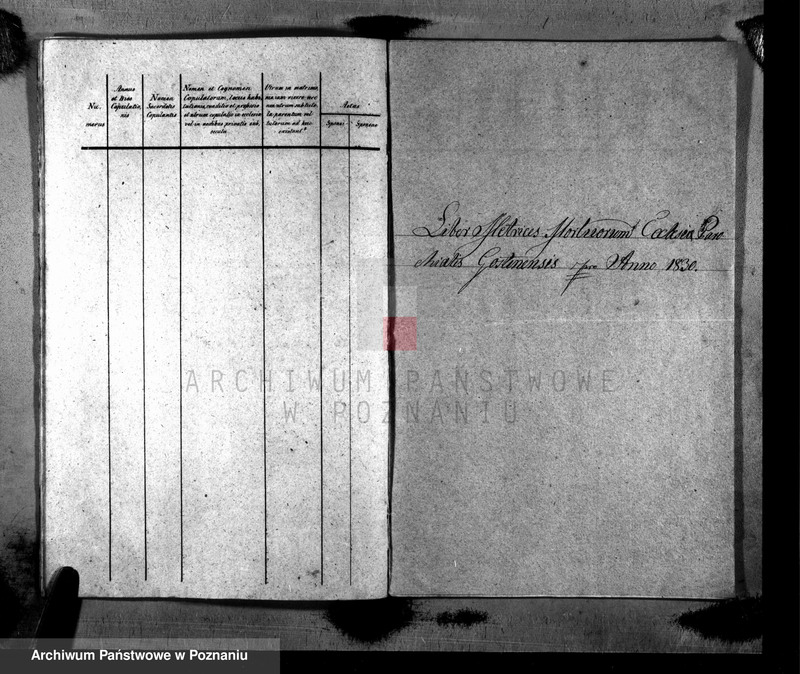 Nu-
merus
Annus
et Dies
Copulatio-
nis
Nomen
Sacerdotis
Copulantis
Nomen et Cognomen
Copulatorum, locus habi-
tationis, conditio et professio
et utrum copulatio in ecclesia
vel in aedibus privatis sub-
secuta
Utrum in matrimo-
nio jam vixere nec
non utrum sub tute-
la parentum vel
tutorum ad huc
existunt
Aetas
Sponsi
Sponsae
Liber Metrices Mortuorum Ecclesia Paro
chialis Gostinensis pro Anno 1830.
ARCHIWUM PAŃSTWOWE
W POZNANIU
Archiwum Państwowe w Poznaniu